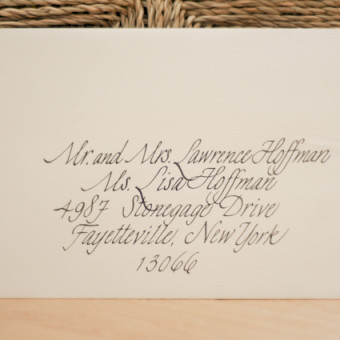 Mr. and Mrs. Lawrence Hoffman
Ms. Lisa Hoffman
4987 Stonegage Drive
Fayetteville, New York
13066